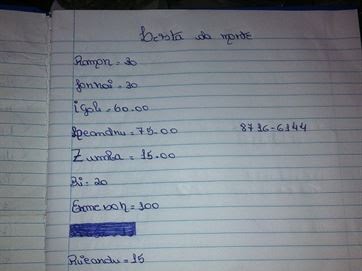 Lesta da morte
Ramon = 20
Jonnoi = 20
Igoli = 60.00
Leandnu = 75.00 8716-6144
Zumba = 15.00
Bi = 20
Emerson = 100
Ricandu = 15